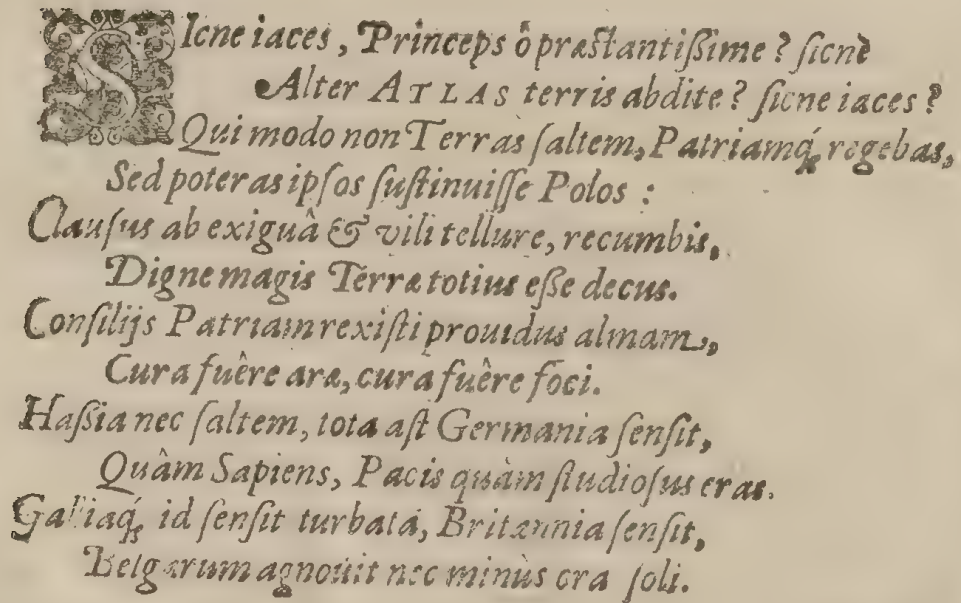 SIcne iaces, Princeps ô præstantißime? sicnè
Alter ATLAS terris abdite? sicne iaces?
Qui modo non Terras saltem, Patriamq́; regebas,
Sed poteras ipsos sustinuisse Polos:
Clausus ab exiguâ & vili tellure, recumbis,
Digne magis Terræ totius esse decus.
Consilijs Patriam rexisti prouidus almam,
Cura fuêre aræ, cura fuêre foci.
Haßia nec saltem, tota ast Germania sensit,
Quâm Sapiens, Pacis quàm studiosus eras.
Galliaq́; id sensit turbata, Britannia sensit,
Belgarum agnouit nec minùs ora soli.